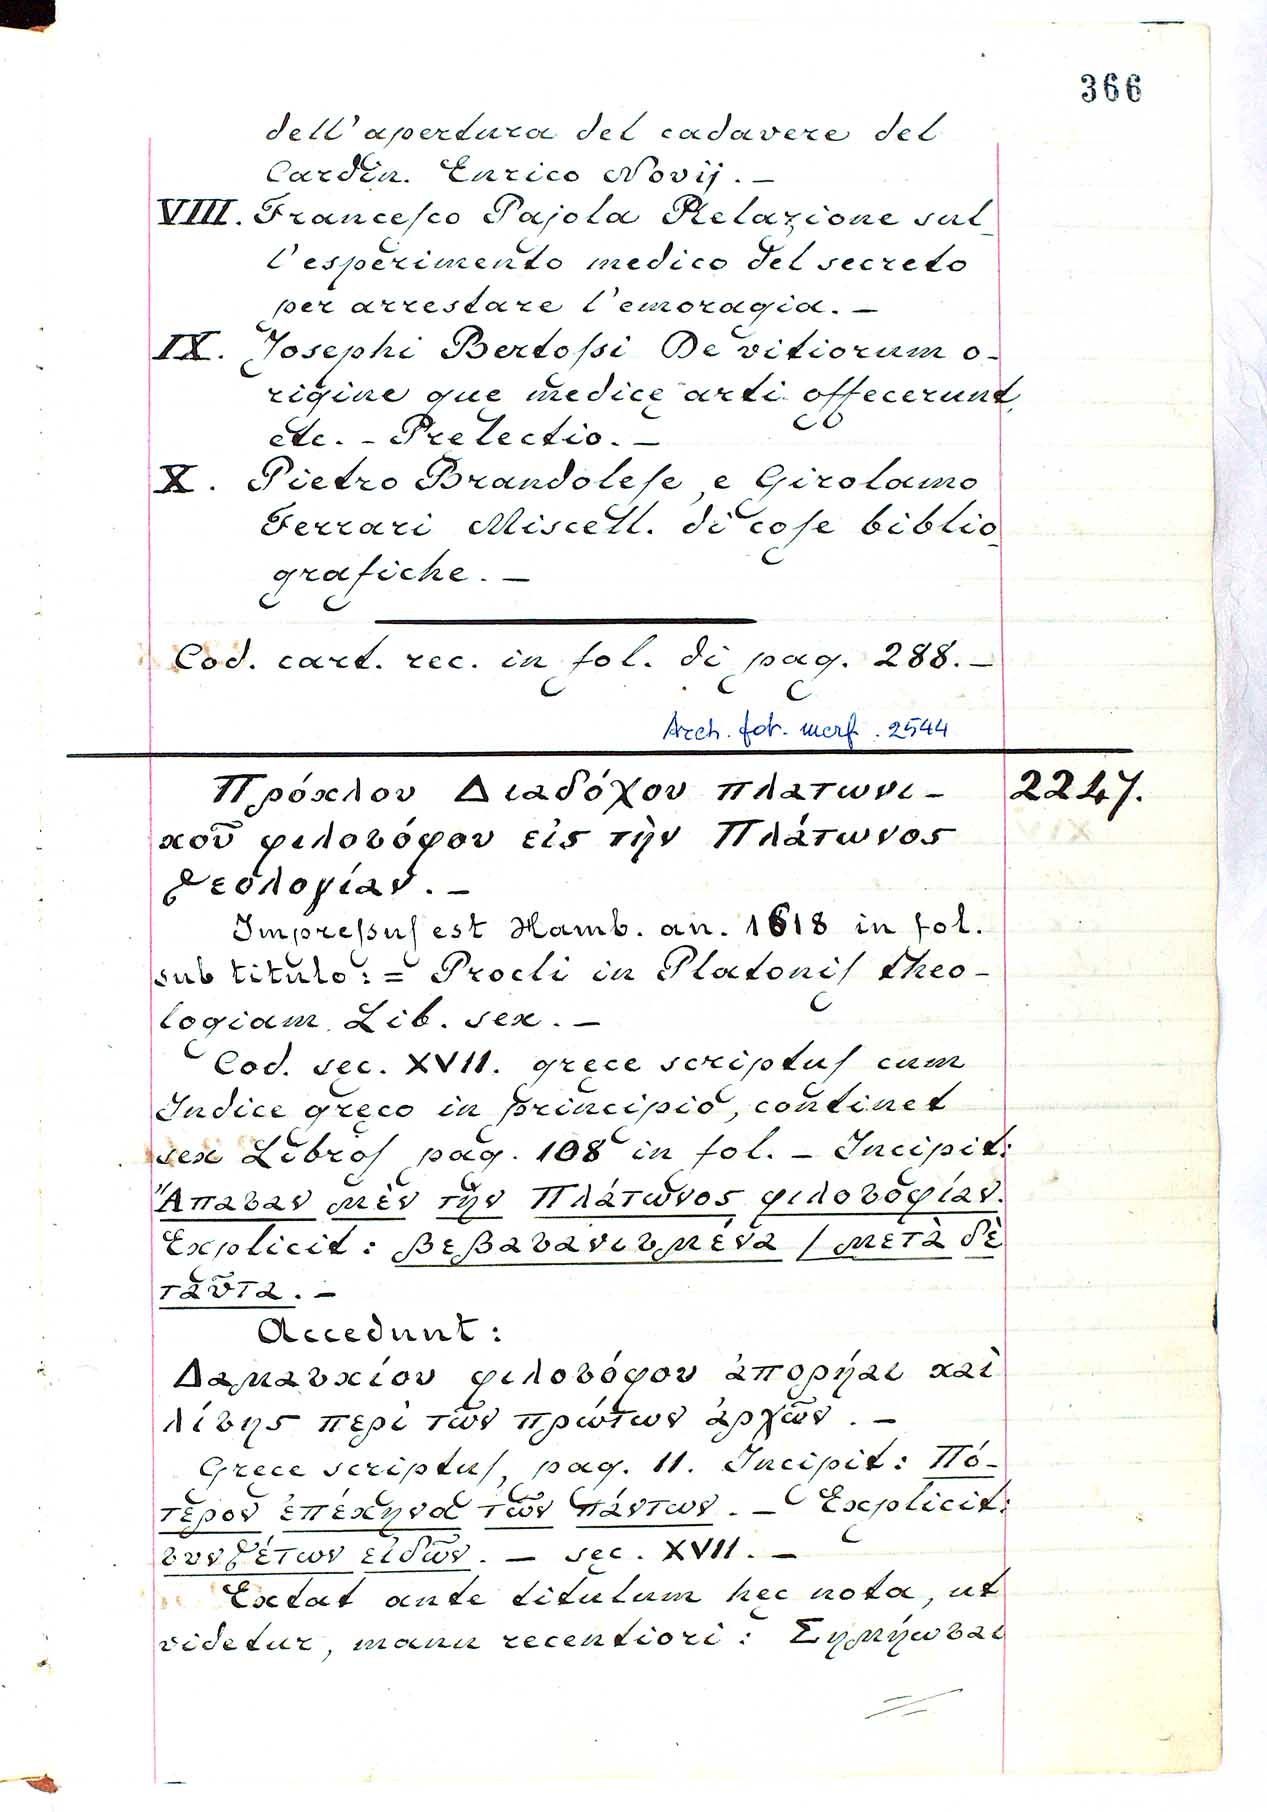 366
dell'apertura del cadavere del
Cardin. Enrico Novij. —
VIII. Francesco Pajola Relazione sul_
l'esperimento medico del secreto
per arrestare l'emoragia. —
IX. Josephi Bertossi De vitiorum o-
rigine quę medicę arti offecerunt,
etc. - Prelectio. —
X. Pietro Brandolese, e Girolamo
Ferrari Miscell. di cose biblio_
grafiche. —
Cod. cart. rec. in fol. di pag. 288. —
Arch. fot. marf. 2544
Πρόκλου Διαδόχου πλατωνι- 2247.
κοῦ φιλοσόφου εἰς τὴν Πλάτωνος
θεολογίαν. —
Impressus est Hamb. an. 1618 in fol.
sub titulo: = Procli in Platonis theo-
logiam Lib. sex. —
Cod. sec. XVII. gręce scriptus cum
Indice gręco in principio, continet
sex Libros pag. 108 in fol. — Incipit:
Ἅπασαν μὲν τὴν Πλάτωνος φιλοσοφίαν.
Explicit: βεβασανισμένα / μετὰ δὲ
ταῦτα. —
Accedunt:
Δαμασκίου φιλοσόφου ἀπορήαι καὶ
λίσης περὶ τῶν πρώτων ἀρχῶν. —
Gręce scriptus, pag. 11. Incipit: Πό-
τερον ἐπέκηνα τῶν πάντων. — Explicit:
συνθέτων εἰδῶν. — sec. XVII. —
Extat ante titulum hęc nota, ut
videtur, manu recentiori: Σημήωσαι